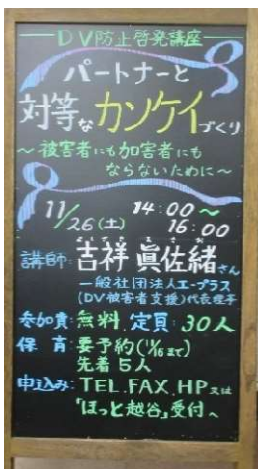 DV防止啓発講座
パートナーと
対等なカンケイづくり
〜被害者にも加害者にも
ならないために〜
11/26(土) 14:00〜16:00
講師:吉祥 眞佐緒さん
一般社団法人エープラス
(DV被害者支援)代表理事
参加費:無料、定員:30人
保育:要予約(11/16まで)
先着5人
申込み:TEL.FAX.HP又は
「ほっと越谷」受付へ